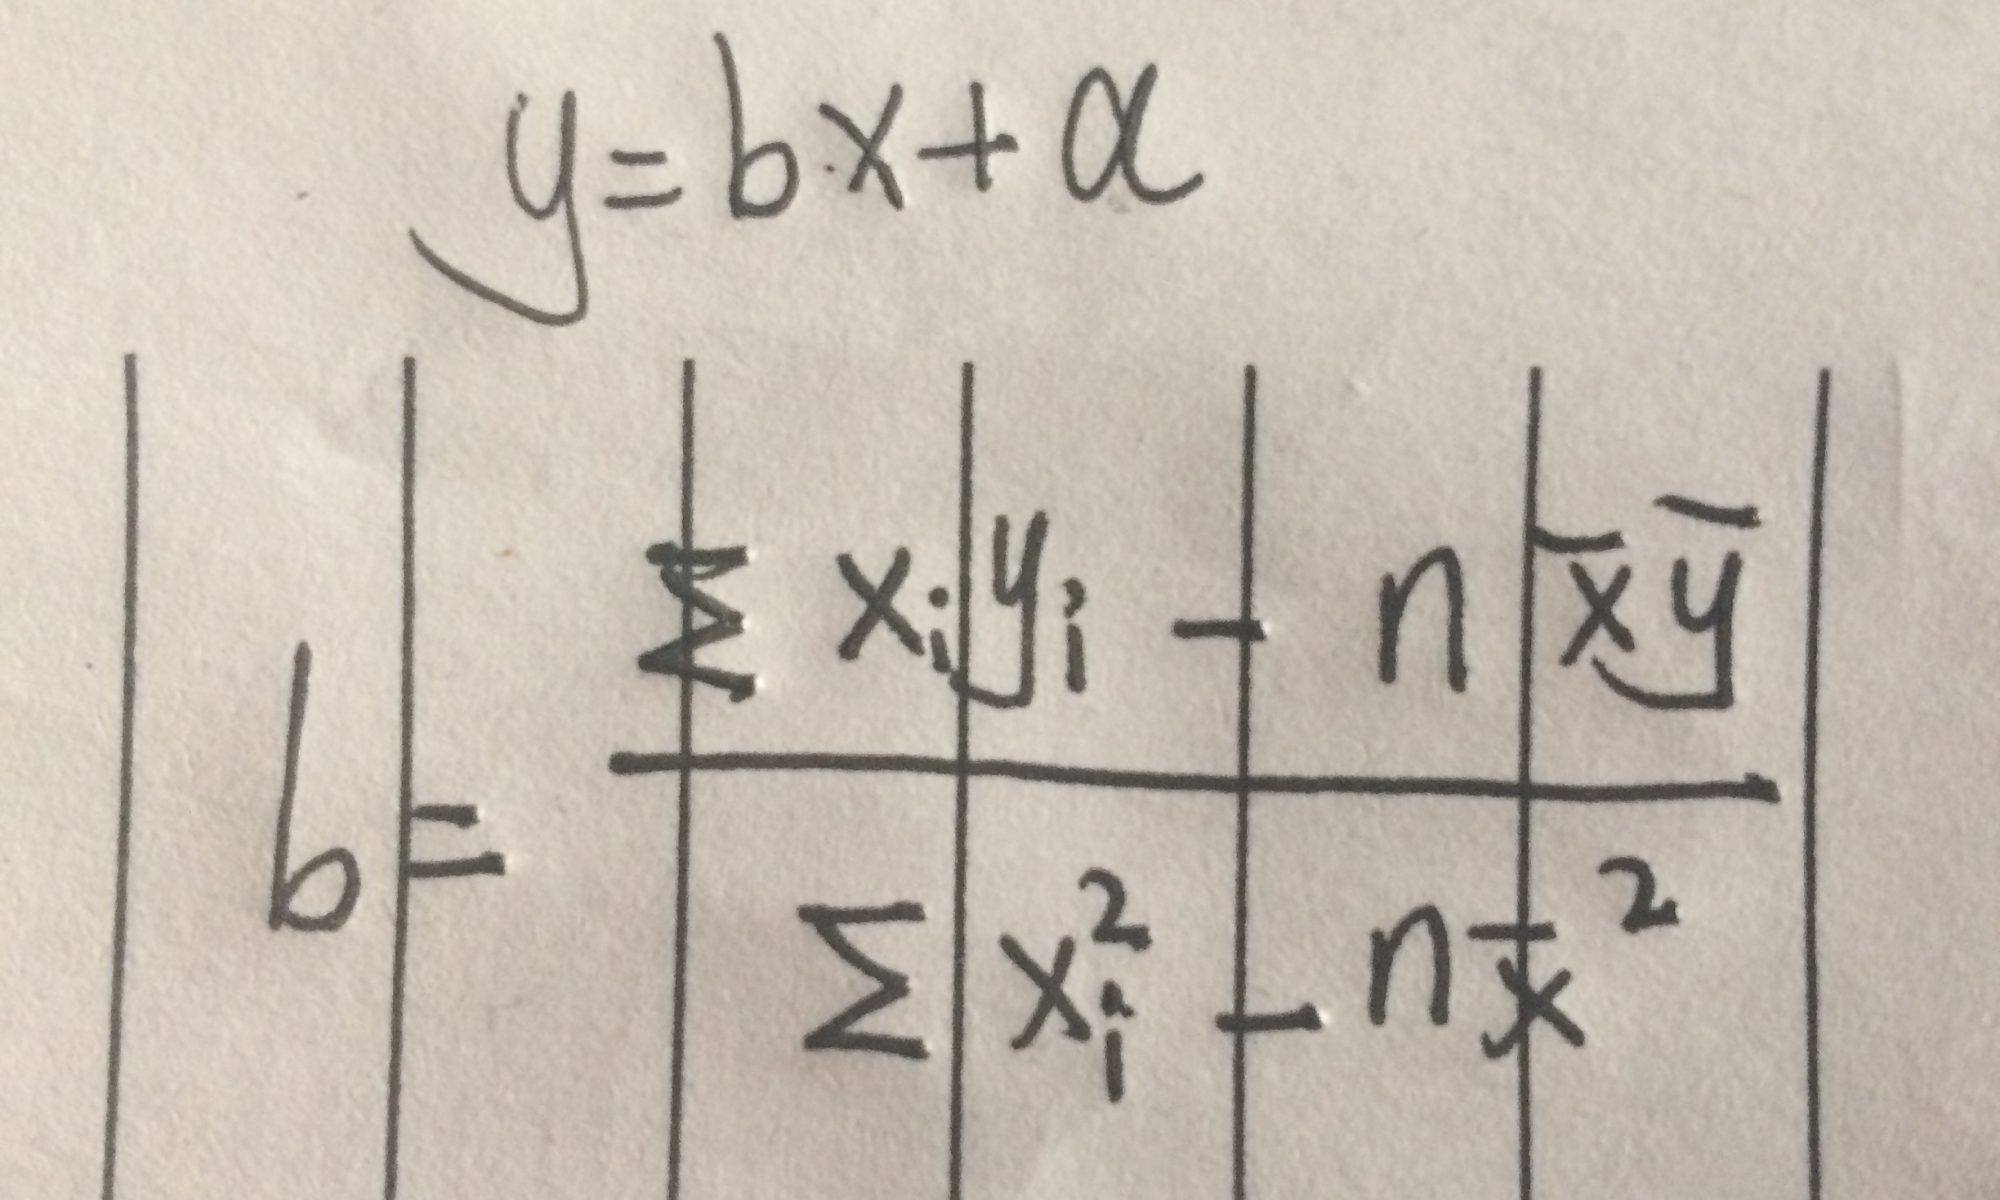 y=bx+a
b= (Σ xᵢyᵢ - n x̄ȳ) / (Σ xᵢ² - n x̄²)